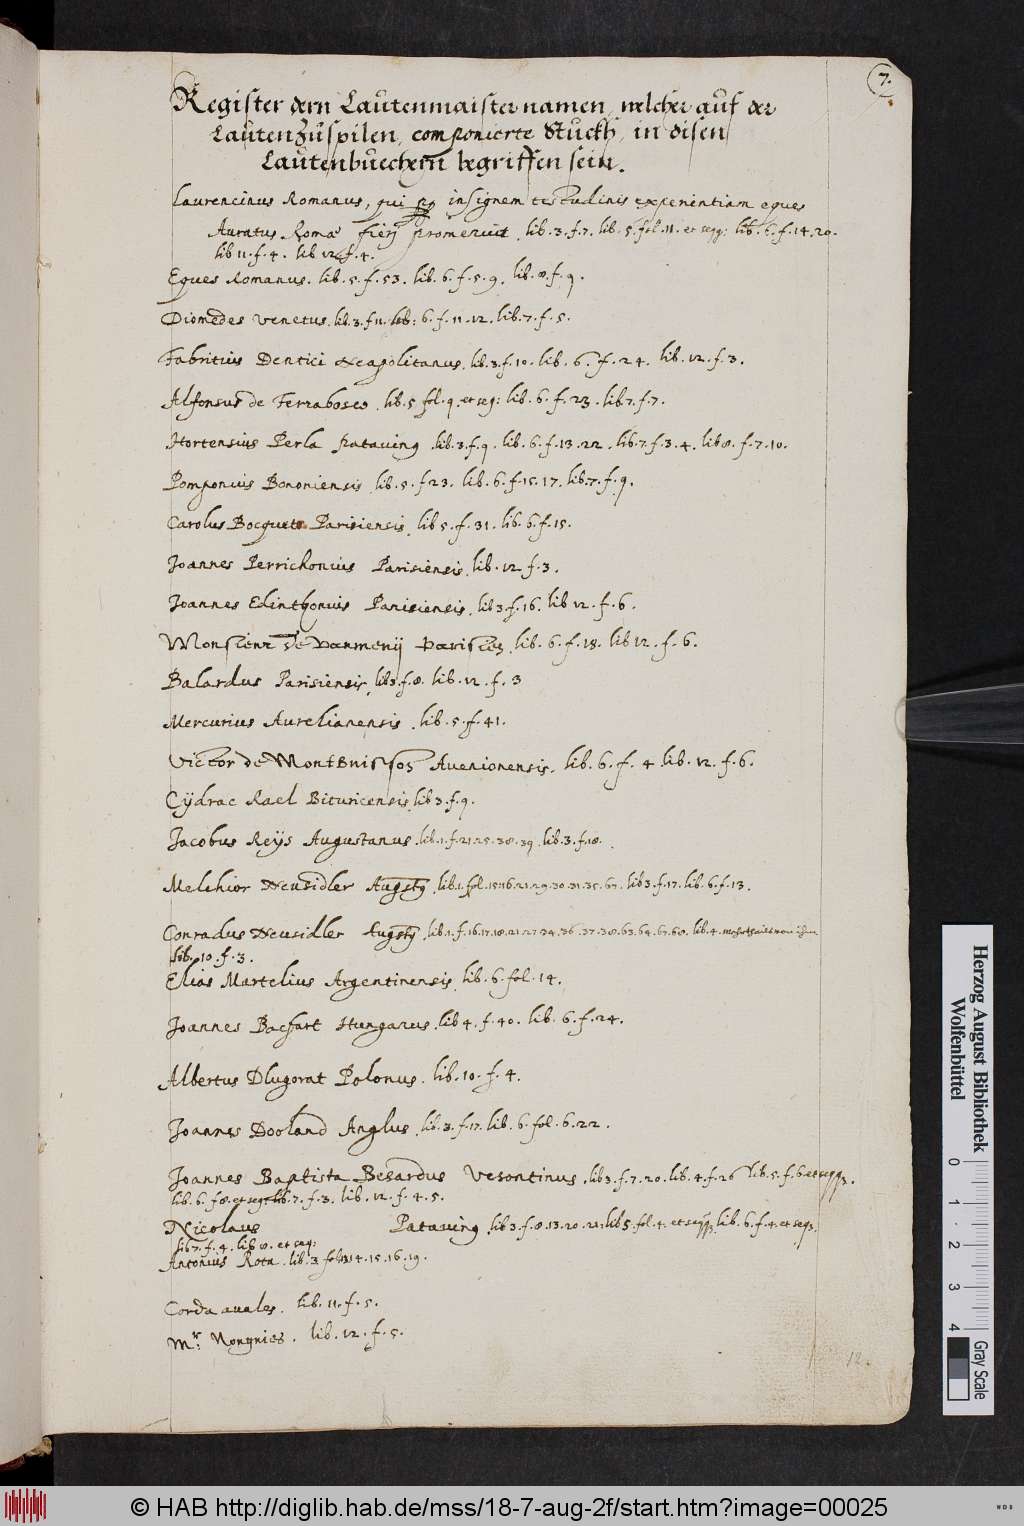 7.
Register dern Lautenmaister namen, welcher auf der
Lautenzuspilen, componierte Stuckh, in disen
Lautenbuechern begriffen sein.
Laurencinus Romanus, qui insignem testudinis experientiam eques
Auratus Romæ fierj promeruit. lib. 3. f. 7. lib. 5. fol. 11. et seqq: lib. 6. f. 14. 20.
lib 11. f. 4. lib 12. f. 4.
Eques Romanus. lib. 5. f. 53. lib. 6. f. 5. 9. lib. 8. f. 9.
Diomedes Venetus. lib. 3. f 11. lib: 6. f. 11. 12. lib. 7. f. 5.
Fabritius Dentici Neapolitanus. lib. 3. f. 10. lib. 6. f. 24. lib. 12. f. 3.
Alfonsus de Ferrabosco. lib. 5 fol. 9. et seq: lib. 6. f. 23. lib 7. f. 7.
Hortensius Perla Patauing. lib. 3. f. 9. lib. 6. f. 13. 22. lib. 7. f. 3. 4. lib 8. f. 7. 10.
Pomponius Bononiensis. lib. 5. f 23. lib. 6. f. 15. 17. lib. 7. f. 9.
Carolus Bocquet Parisiensis. lib 5. f. 31. lib. 6. f. 15.
Joannes Perrichonius Parisiensis. lib. 12. f. 3.
Joannes Edinthonius Parisiensis. lib 3. f. 16. lib 12. f. 6.
Monsieur de Vaumenij lib. 6. f. 18. lib 12. f. 6.
Balardus Parisiensis. lib 3. f. 8. lib. 12. f. 3
Mercurius Aurelianensis. lib. 5. f. 41.
Victor de Auenionensis. lib. 6. f. 4 lib. 12. f. 6.
Cÿdrac Rael Bituricensis. lib 3. f. 9.
Jacobus Reÿs Augustanus. lib. 1. f. 21. 25. 38. 39. lib. 3. f. 18.
Melchior Neusidler Augsty. lib. 1. fol. 15. 16. 21. 29. 30. 31. 35. 67. lib 3. f. 17. lib. 6. f. 13.
Conradus Neusidler Augsty. lib. 1. f. 16. 17. 18. 21. 27. 34. 36. 37. 38. 63. 64. 67. 68. lib. 4.
lib. 10. f. 3.
Elias Martelius Argentinensis. lib. 6. fol. 14.
Joannes Bacfart Hungarus. lib 4. f. 40. lib. 6. f. 24.
Albertus Dlugorat Polonus. lib. 10. f. 4.
Joannes Dooland Anglus. lib. 3. f. 17. lib. 6. fol. 6. 22.
Joannes Baptista Besardus Vesontinus. lib 3. f. 7. 20. lib. 4. f. 26 lib. 5. f. 6. et seqq.
lib. 6. f 8. et seq. lib. 7. f. 3. lib. 12. f. 4. 5.
Nicolaus Patauing. lib 3. f. 8. 13. 20. 21. lib 5. fol. 4. et seqq. lib. 6. f. 4. et seq.
lib 7. f. 4. lib 8. et seq:
Antonius Rota. lib. 3. fol. 14. 15. 16. 19.
Corda auales. lib. 11. f. 5.
Mr: Nongnies. lib. 12. f. 5.
12.
Herzog August Bibliothek
Wolfenbüttel
0 1 2 3 4
Gray Scale
© HAB http://diglib.hab.de/mss/18-7-aug-2f/start.htm?image=00025